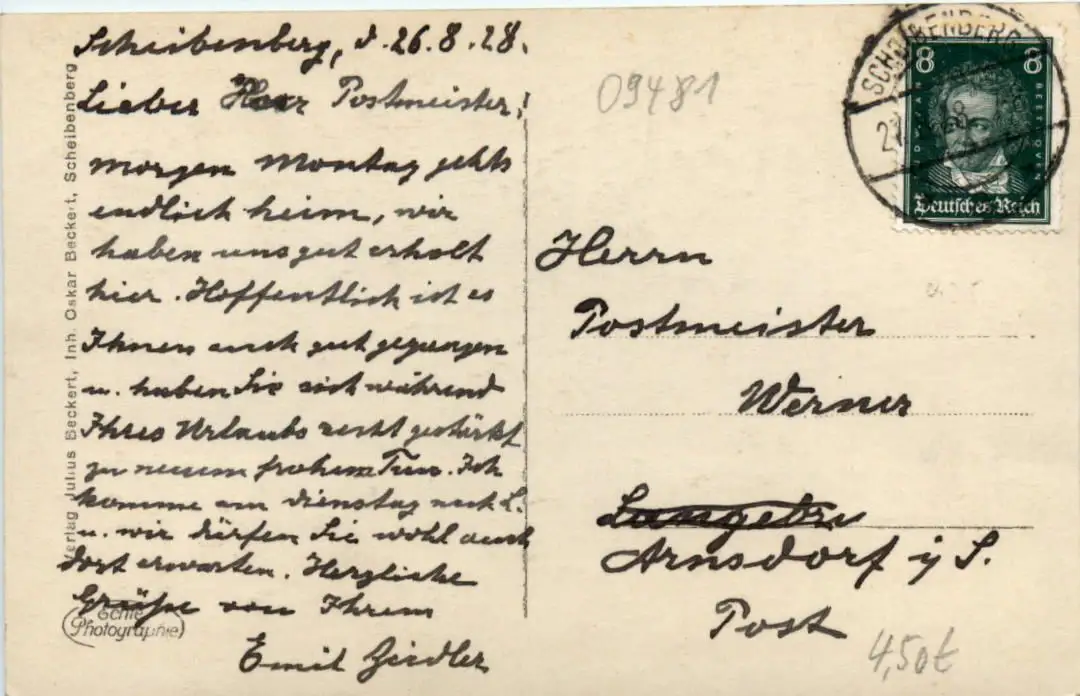 Scheibenberg, d. 26.8.28.
Lieber Herr Postmeister!
Morgen Montag gehts
endlich heim, wir
haben uns gut erholt
hier. Hoffentlich ist es
Ihnen auch gut gegangen
u. haben Sie sich während
Ihres Urlaubs recht gestärkt
zu neuem frohem Tun. Ich
komme am Dienstag nach L.
u. wir dürfen Sie wohl auch
dort erwarten. Herzliche
Grüße von Ihrem
Emil Zeidler
Verlag Julius Beckert, Inh. Oskar Beckert, Scheibenberg
Echte
Photographie
09481
SCHEIBENBERG
8 8
LUDWIG VAN BEETHOVEN
Deutsches Reich
Herrn
Postmeister
Werner
Arnsdorf i/S.
Post
4,50€